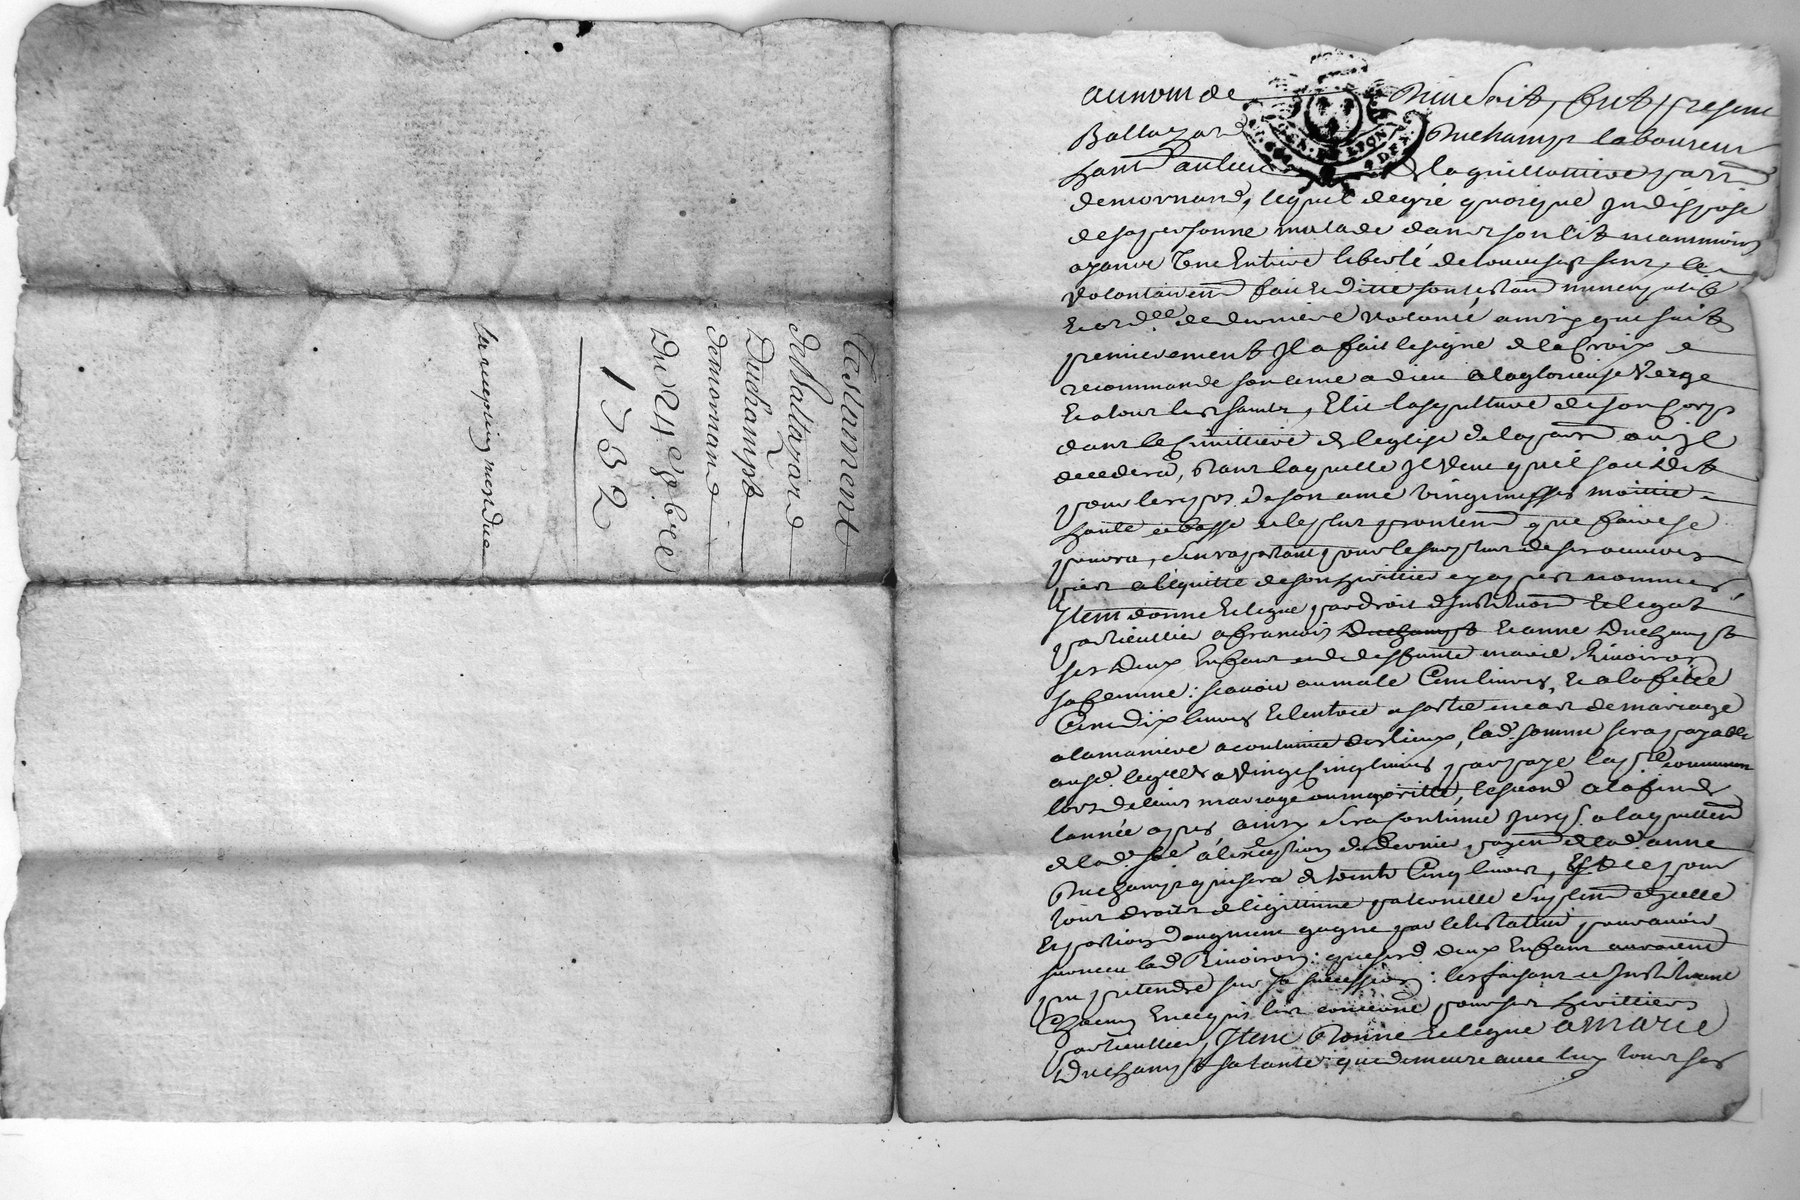 Testament
de Baltazard
Duchampt
demornand
Du 24 8bre
1732
au nom de Dieu soit, fut present
Baltazard Duchampt laboureur
hant au lieu de la guillotiere parr
de mornand, lequel de gré quoique Indisposé
de sa personne malade dans son lit neanmoins
ayant Une Entiere liberté de tous ses sens, le
volontairemt fait et dicté son testamt nuncupatif
et ordce de derniere volonté ainsy que suit
premierement Il a fait le signe de la Croix
recommande son ame a dieu a la glorieuse Vierge
Et a tous les saints, Elit la sepulture de son Corps
dans le Cimittiere de leglise de la parr ou Il
decedera, dans laquelle Il Veut quil soit dit
pour le repos de son ame vingt messes moittié
haute et basse et le plus prontemt que faire se
pourra, sen raportant pour le surplus de ses œuvres
pies a lequitté de son herittier cy apres nommé
Item donne et legue par droit dInstitution et legat
particullier a francois Duchampt et anne Duchampt
ses deux Enfans et de deffunte marie Rivoiron
sa femme: scavoir au male Cent livres, et a la fille
Cent dix livres et lentrée a sortie en cas de mariage
a la maniere acoutumée des lieux, lad. somme sera payable
aux d. leguées a vingt Cinq livres par paye la pre commen
lors de leur mariage ou majoritté, la second a la fin de
lannée apres, ainsy sera continué jusqs a laquittemt
de lad. se a lexeption du dernier payemt de lad. anne
Duchampt qui sera de trente Cinq livres, Et ce pour
tous droits de legittime paternelle suplemt dycelle
Et portions daugment gagné par le
survecu lad. Rivoiron: que sesd. deux Enfans auroient
peu pretendre sur sa succession: les faisant et Instituant
Chacun En ce qui les concerne pour ses herittiers
particulliers, Item Donne et legue a marie
Duchampt sa tante que demeure avec luy tous ses